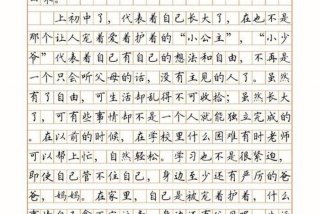 上初中了，代表着自己长大了，在也不是
那个让人宠着爱着护着的“小公主”，“小少
爷”代表着自己有自己的想法和自由，不再是
一个只会听父母的话，没有主见的人了。虽然
有了自由，可生活却乱得不可收拾；虽然长大
了，可有些事情却不是一个人就能独立完成的
。在以前的时候，在学校里什么困难有时老师
可以帮上忙，自然轻松。学习也不是很紧迫，
即使自己管不住自己，身边至少还有严厉的爸
爸，妈妈。在家里，自己是被宠着护着，什么